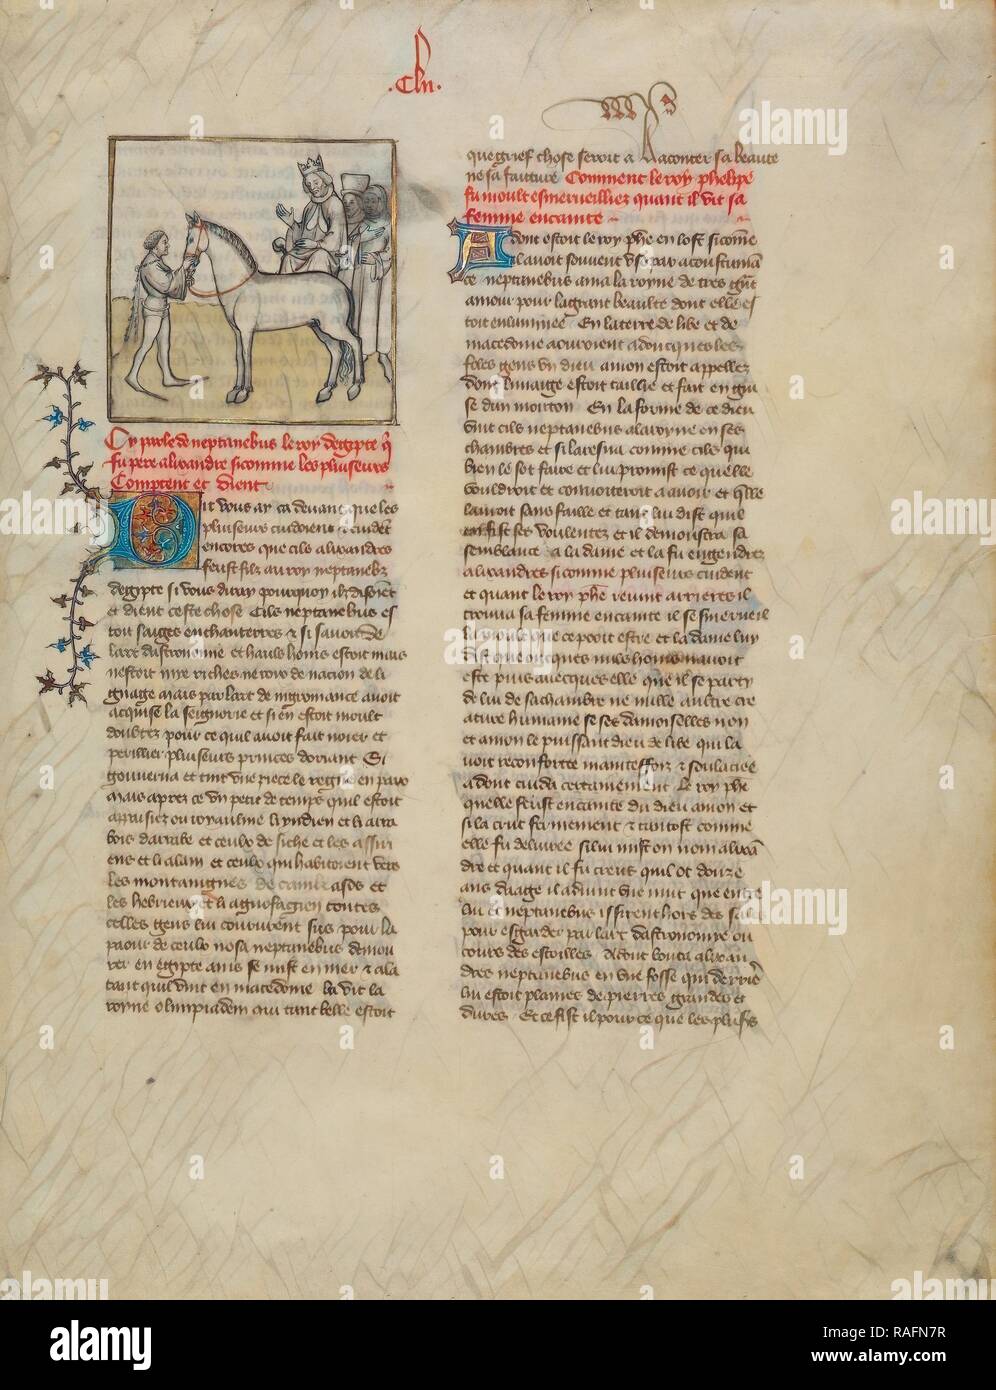 .Clii.
Cy parle de neptanebus le roy degipte q̄
fu pere alixandre si comme les pluiseurs
Comptent et dient
Dit vous ay ca devant que les
pluiseurs cuidoient et cuidēt
encores que cils alixandres
feust filz au roy neptaneb9
degipte si vous diray pourquoy ilz disoiēt
et dient ceste chose Cils neptanebus es
toit saiges enchanterres et si savoit de
lart dastronomie et haulz homs estoit mais
nestoit mie riches ne roy de nacion de li
gnage mais par lart de nigromance avoit
acquise la seignorie et si en estoit moult
doubtez pour ce quil avoit fait noier et
perillier pluiseurs princes doriant Si
gouverna et tint une piece le regne en paix
mais aprez ce un petit de temps quil estoit
appaisiez ou royaulme li yndien et li arra
bois darrabe et ceulx de siche et les assiri
ens et li alain et ceulx qui habitoient vers
les montaingnes de et
les hebrieux et li toutes
celles gens lui coururent sus pour la
paour de ceulx nosa neptanebus demou
rer en egipte ains se mist en mer et ala
tant quil vint en macedoine la vit la
royne olimpiadem qui tant belle estoit
que grief chose seroit a Raconter sa beaute
ne sa faiture Comment le roy phelippe
fu moult esmerveilliez quant il vit sa
femme encainte
Adont estoit le roy phē en lost si cōme
il avoit souvent us par acoustumā
ce neptanebus ama la royne de tres grāt
amour pour la grant beaulte dont elle es
toit enluminee En la terre de libe et de
macedoine aouroient adoncques les
foles gens un dieu amon estoit appellez
dont lymaige estoit taillie et fait en gui
se dun mouton En la forme de ce dieu
vint cils neptanebus a la royne en ses
chambres et si la resua comme cils qui
bien le sot faire et lui promist ce quelle
vouldroit et convoiteroit a avoir et q̄lle
lauroit sans faille et tant lui dist quil
en fist ses voulentez et il demonstra sa
semblance a la dame et la fu engendrez
alixandres si comme pluiseurs cuident
et quant le roy phē revint arrieres il
trouva sa femme encainte il se smerueil
la moult que ce pooit estre et la dame luy
dist que oncques nuls homs navoit
este puis avecques elle que il se party
de lui de sa chambre ne nulle aultre cre
ature humaine se ses damoiselles non
et amon le puissant dieu de libe qui la
voit reconfortee maintesfoiz et soulaciee
adont cuida certainement le roy phē
quelle feust encainte du dieu amon et
si la crut fermement et tantost comme
elle fu delivree si lui mist on nom alixā
dre et quant il fu creus quil ot douze
ans daage il advint une nuit que entre
lui et neptanebus issirent hors des sales
pour esgarder par lart dastronomie ou
cours des estoilles Adont bouta alixan
dres neptanebus en une fosse qui derriē
lui estoit plaines de pierres grandes et
dures Et ce fist il pour ce que les pluisrs
alamy
a
alamy
Image ID: RAFN7R
www.alamy.com